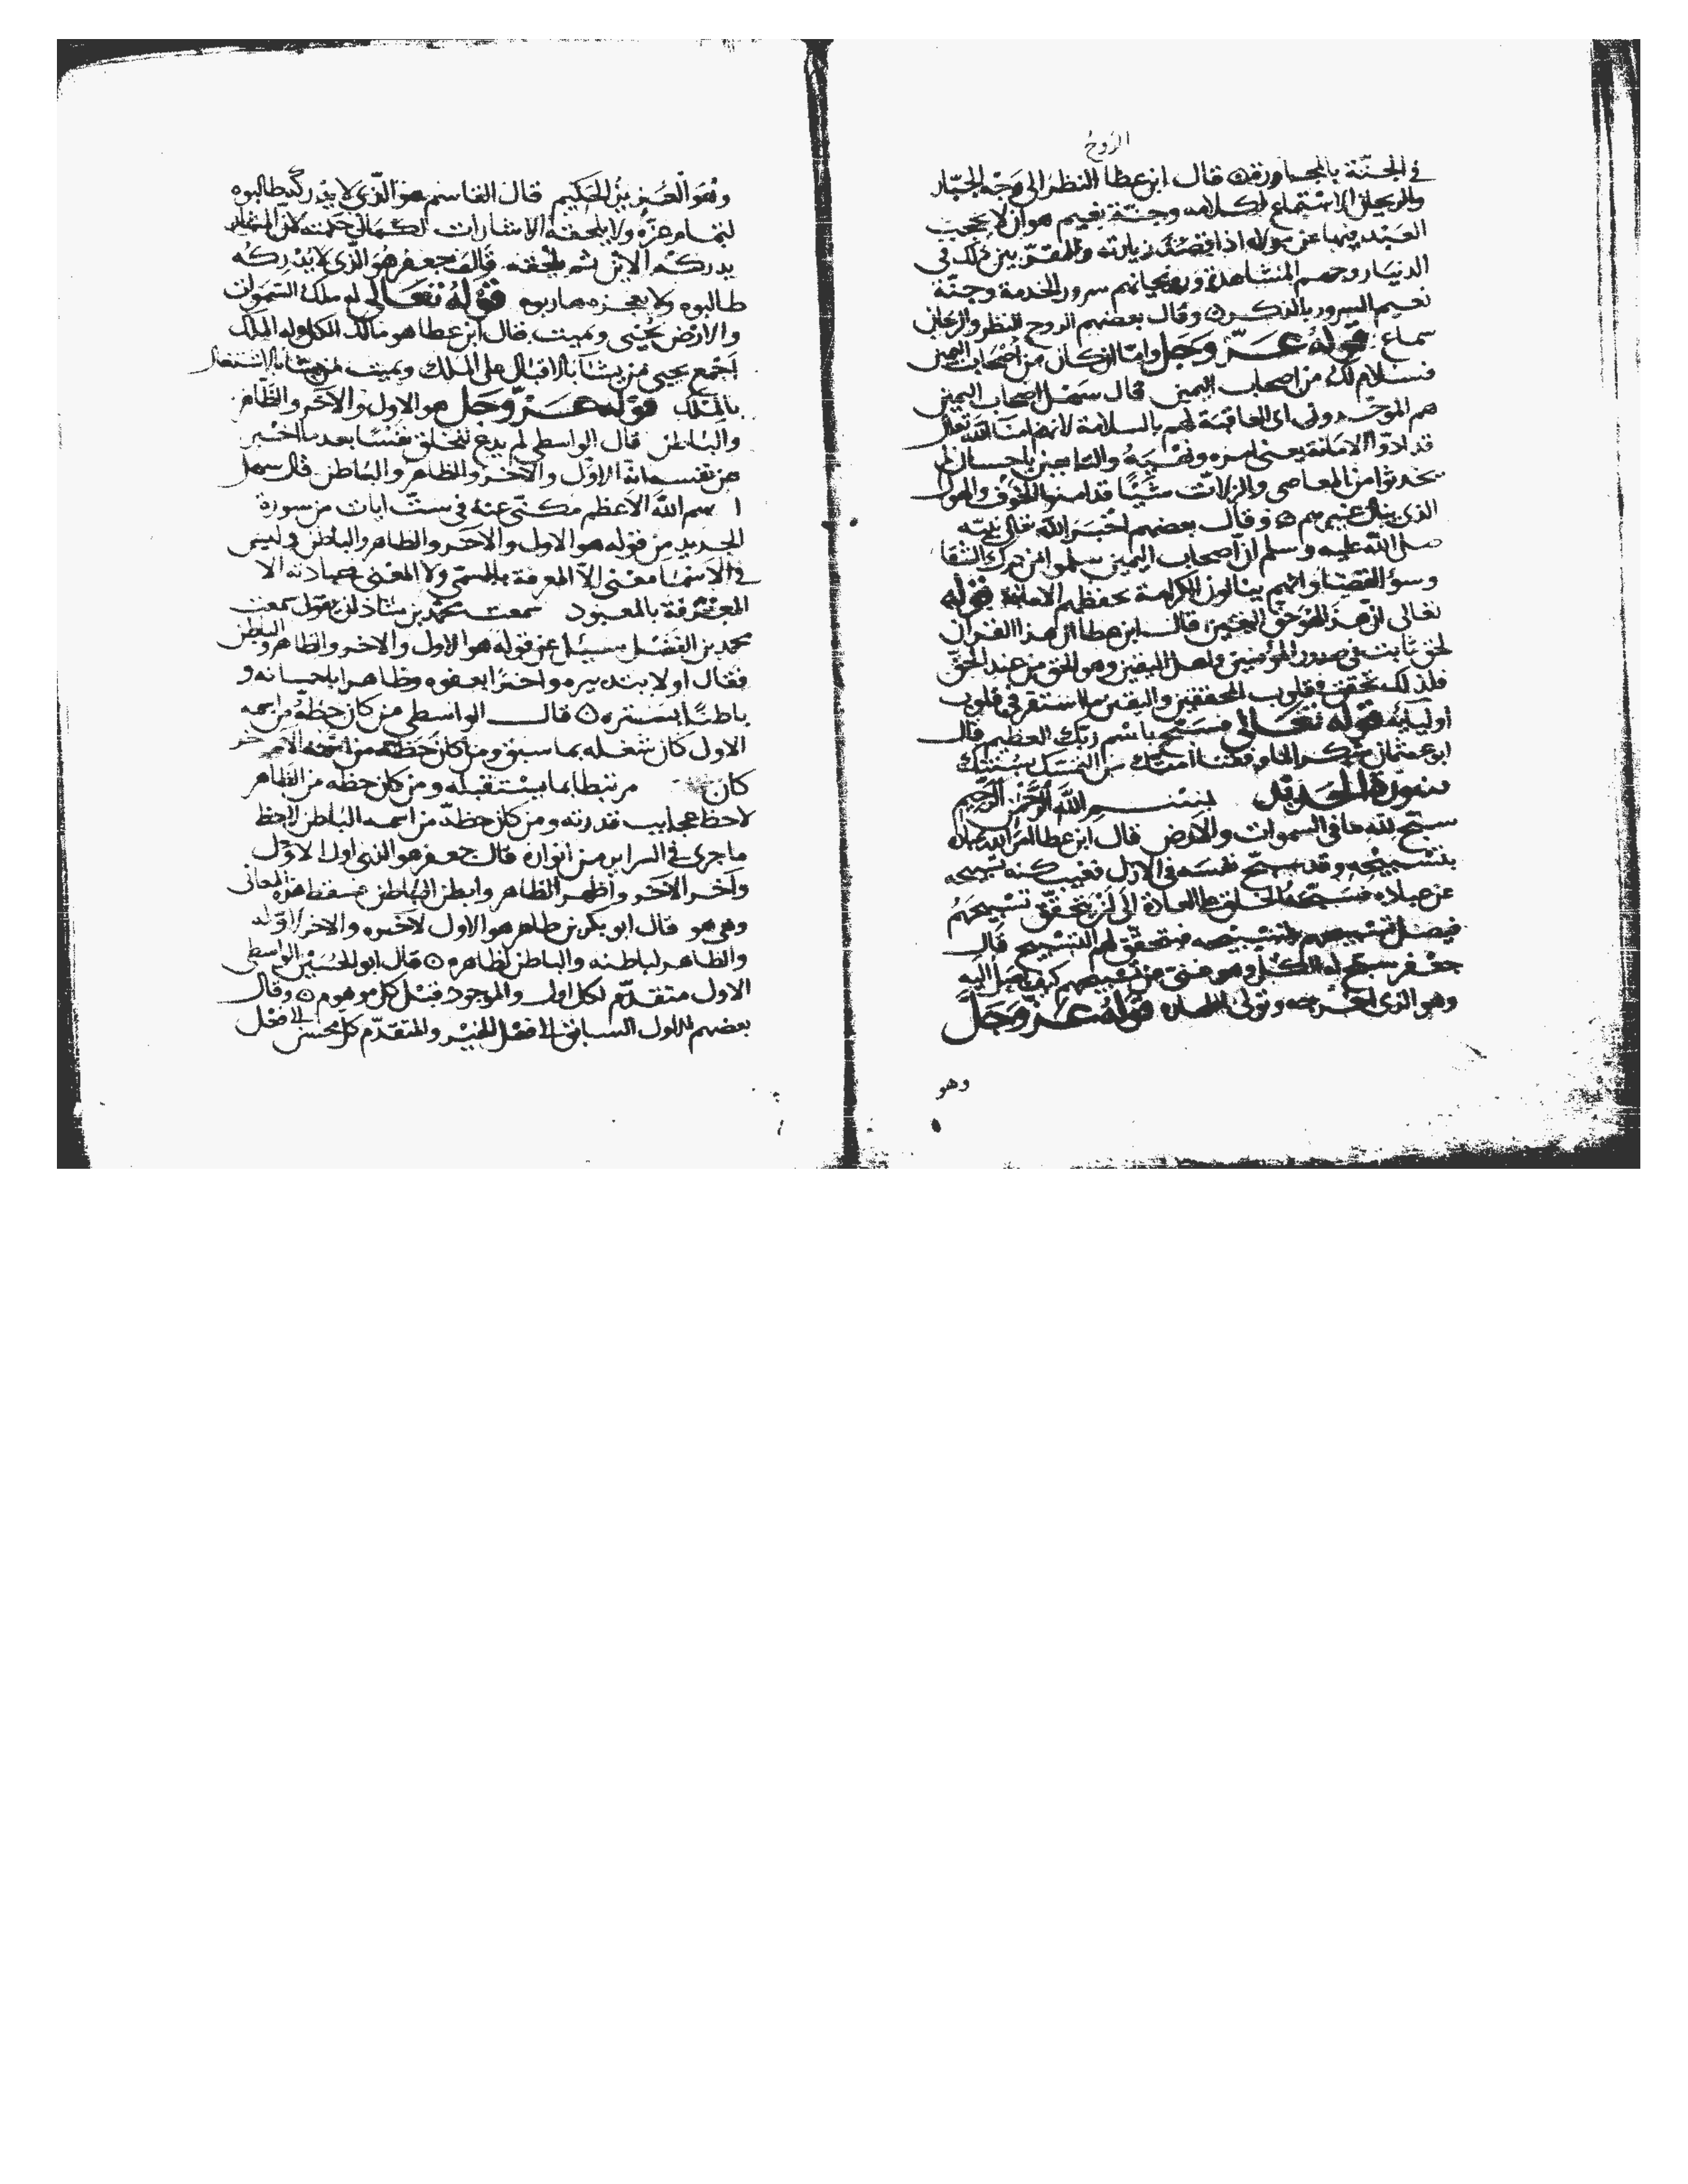 الروح
في الجنة بالمجاورة قال ابن عطا النظر الى وجه الجبار
والريحان الاستماع لكلامه وجنة نعيم هو ان لا يحجب
العبد فيها عن مولاه اذا قصد زيارته وللمقربين ذلك في
الدنيا روحهم المشاهدة وريحانهم سرور الخدمة وجنة
نعيم السرور بالذكر وقال بعضهم الروح النظر والريحان
سماع قوله عز وجل واما ان كان من اصحاب اليمين
فسلام لك من اصحاب اليمين قال سهل اصحاب اليمين
هم الموحدون اي العاقبة لهم بالسلامة لانهم امنا الله تعالى
قد ادوا الامانة يعني امره ونهيه والتابعين باحسان لم
يحدثوا من المعاصي والزلات شيئا قد امنوا الخوف والهول
الذي ينال غيرهم وقال بعضهم اخبر الله تعالى نبيه
صلى الله عليه وسلم ان اصحاب اليمين سلموا من درك الشقا
وسؤ القضا وانهم ينالون الكرامة بحفظهم الامانة قوله
تعالى ان هذا لهو حق اليقين قال ابن عطا ان هذا القران
لحق ثابت في صدور المؤمنين واهل اليقين وهو الحق من عند الحق
فلذلك تحقق في قلوب المحققين واليقين ما استقر في قلوب
اوليائه قوله تعالى فسبح باسم ربك العظيم قال
ابو عثمان شكرا لما وفقنا امتك من التمسك بسنتك
سورة الحديد بسم الله الرحمن الرحيم
سبح لله ما في السموات والارض قال ابن عطا امر الله عباده
بتسبيحه وقد سبح نفسه في الازل فغيب كنه تسبيحه
عن عباده فسبحه الخلق العادة الى لن يتحقق تسبيحهم
فيضل تسبيحهم لتسبيحه فتحقق لهم التسبيح قال
جعفر سبح له الكل وهو غني عن تسبيحهم كيف يصل اليه
وهو الذي وتولى قوله عز وجل
وهو
وهو العزيز الحكيم قال القاسم هو الذي لا يدركه طالبوه
لتمام عزه ولا تلحقه الاشارات لكمال حكمته لان
يدركه الاين ثم تلحقه قال جعفر هو الذي لا يدركه
طالبوه ولا يعجزه هاربوه قوله تعالى له ملك السموات
والارض يحيي ويميت قال ابن عطا هو مالك الكل وله الملك
اجمع يحيي من يشا بالاقبال على الملك ويميت من يشا بالاشتغال
بالملك قوله عز وجل هو الاول والاخر والظاهر
والباطن قال الواسطي لم يدع للخلق نفسا بعد ما اخبر
عن نفسه انه الاول والاخر والظاهر والباطن قال سهل
اسم الله الاعظم مكنى عنه في ست ايات من سورة
الحديد من قوله هو الاول والاخر والظاهر والباطن وليس
في الاسما معنى الا المعرفة بالمسمى ولا المعنى في عبادته الا
المعرفة بالمعبود سمعت محمد بن شاذان يقول سمعت
محمد بن الفضل سئل عن قوله هو الاول والاخر والظاهر والباطن
فقال اولا بتدبيره واخرا بعفوه وظاهرا باحسانه و
باطنا بستره قال الواسطي من كان حظه من اسمه
الاول كان شغله بما سبق ومن كان حظه من اسمه الاخر
كان مرتبطا بما يستقبله ومن كان حظه من الظاهر
لاحظ عجايب قدرته ومن كان حظه من اسمه الباطن لاحظ
ما جرى في السراير من انواره قال جعفر هو الذي اول الاول
واخر الاخر واظهر الظاهر وابطن الباطن فسقط هذه المعاني
وهي هو قال ابو بكر بن طاهر هو الاول لاخره والاخر لاوله
والظاهر لباطنه والباطن لظاهره قال ابو الحسين الواسطي
الاول متقدم لكل اول والموجود قبل كل موهوم وقال
بعضهم الاول السابق الى فعل الخير والمتقدم كل محسن الى فعل